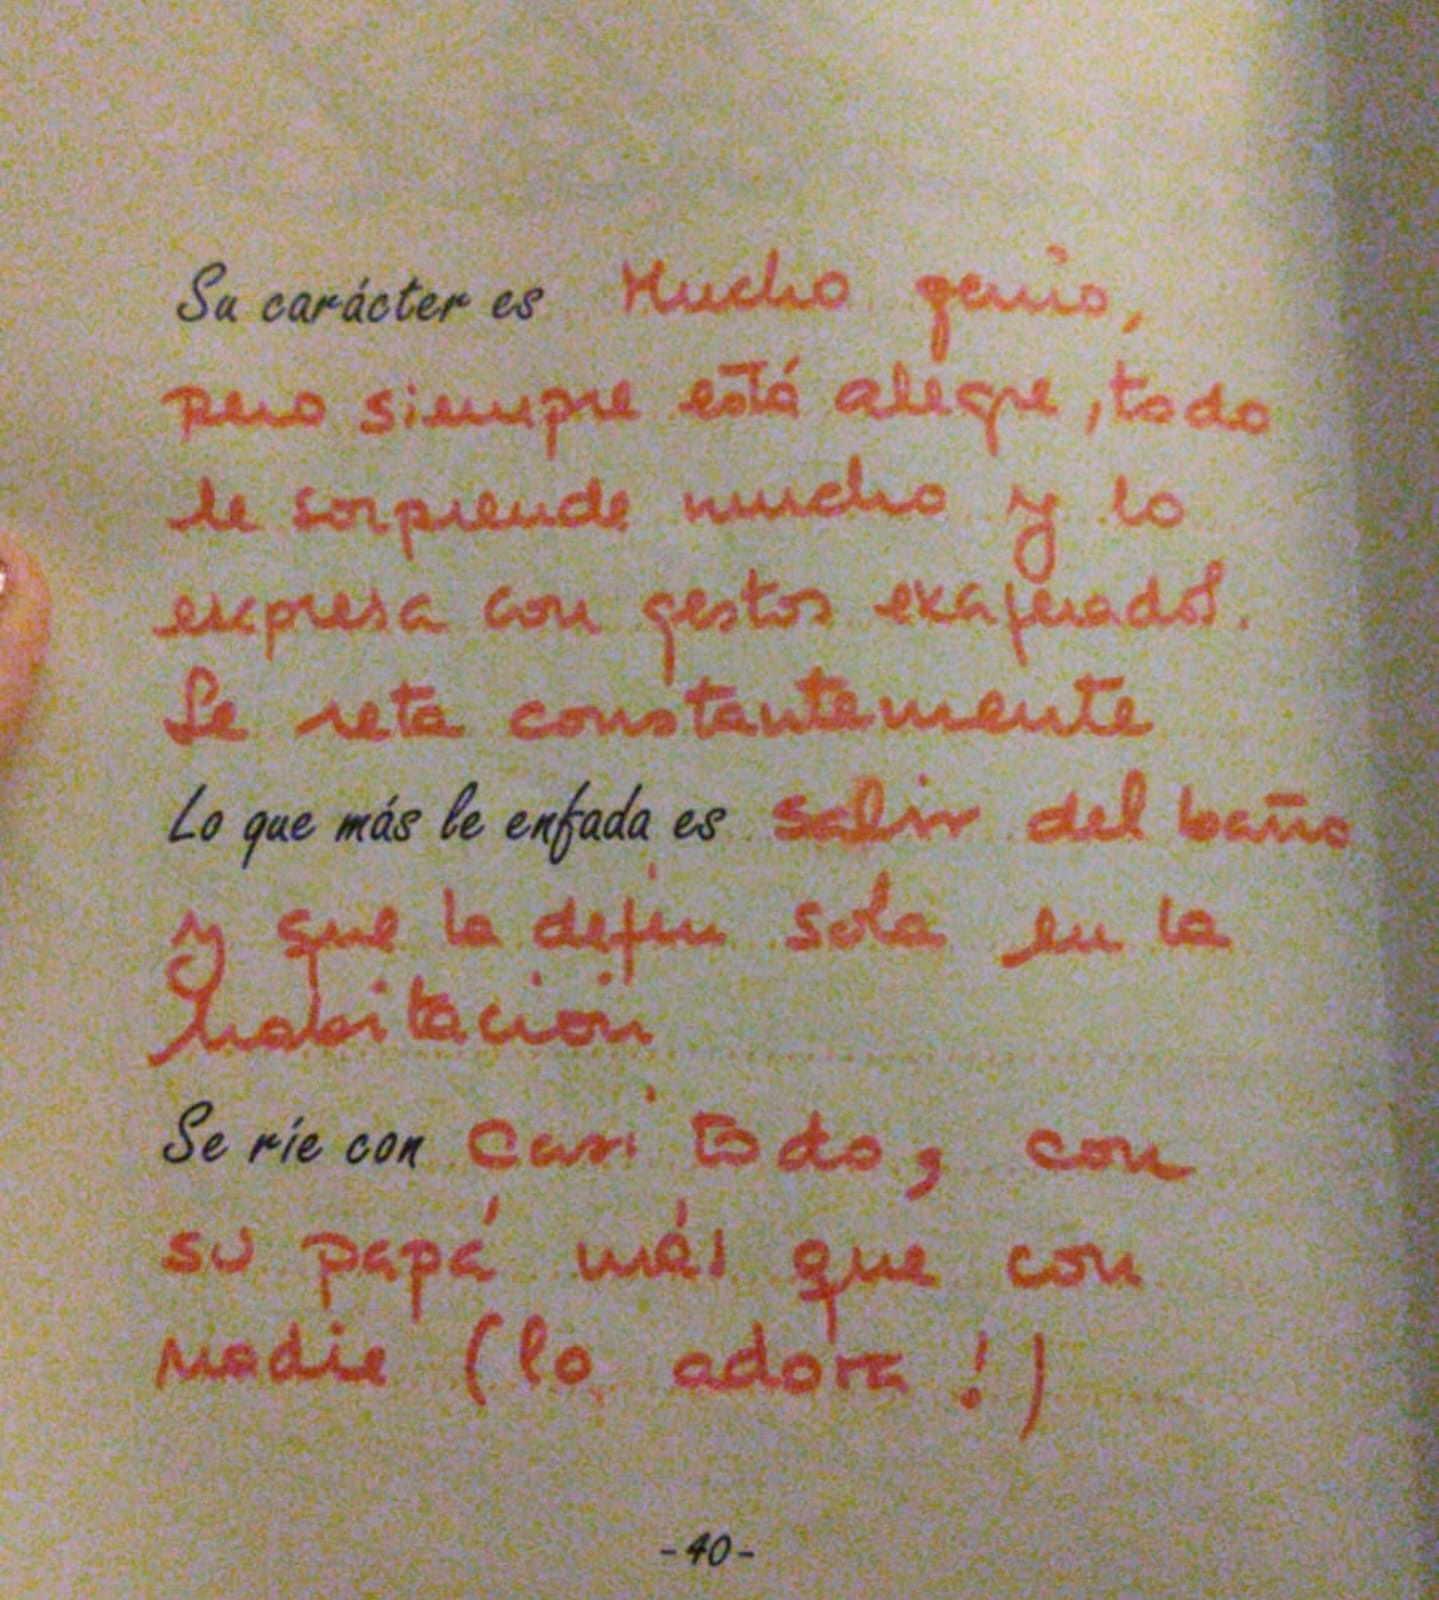 Su carácter es Mucho genio,
pero siempre está alegre, todo
le sorprende mucho y lo
expresa con gestos exajerados.
Se reta constantemente
Lo que más le enfada es salir del baño
y que la dejen sola en la
habitación
Se ríe con Casi todo, con
su papá más que con
Nadie (lo adora!)
-40-